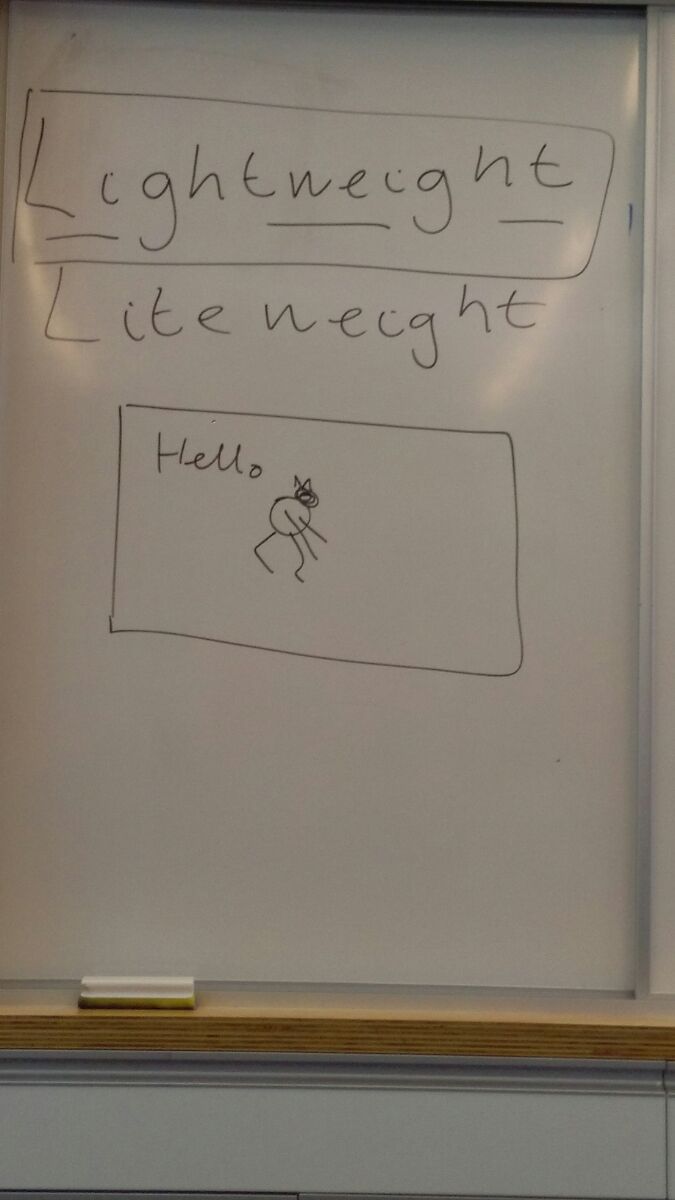 Lightweight
Liteweight
Hello